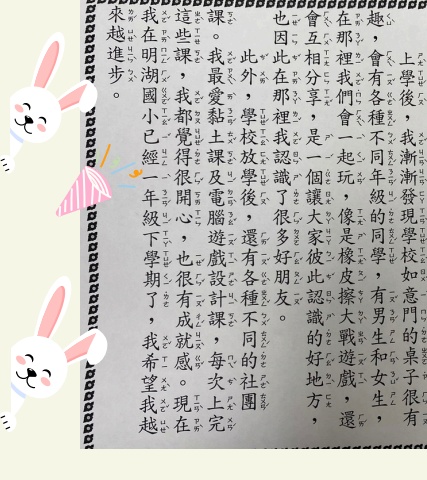 上學後，我漸漸發現學校如意門的桌子很有
趣，會有各種不同年級的同學，有男生和女生，
在那裡我們會一起玩，像是橡皮擦大戰遊戲，還
會互相分享，是一個讓大家彼此認識的好地方，
也因此在那裡我認識了很多好朋友。
此外，學校放學後，還有各種不同的社團
課。我最愛黏土課及電腦遊戲設計課，每次上完
這些課，我都覺得很開心，也很有成就感。現在
我在明湖國小已經一年級下學期了，我希望我越
來越進步。